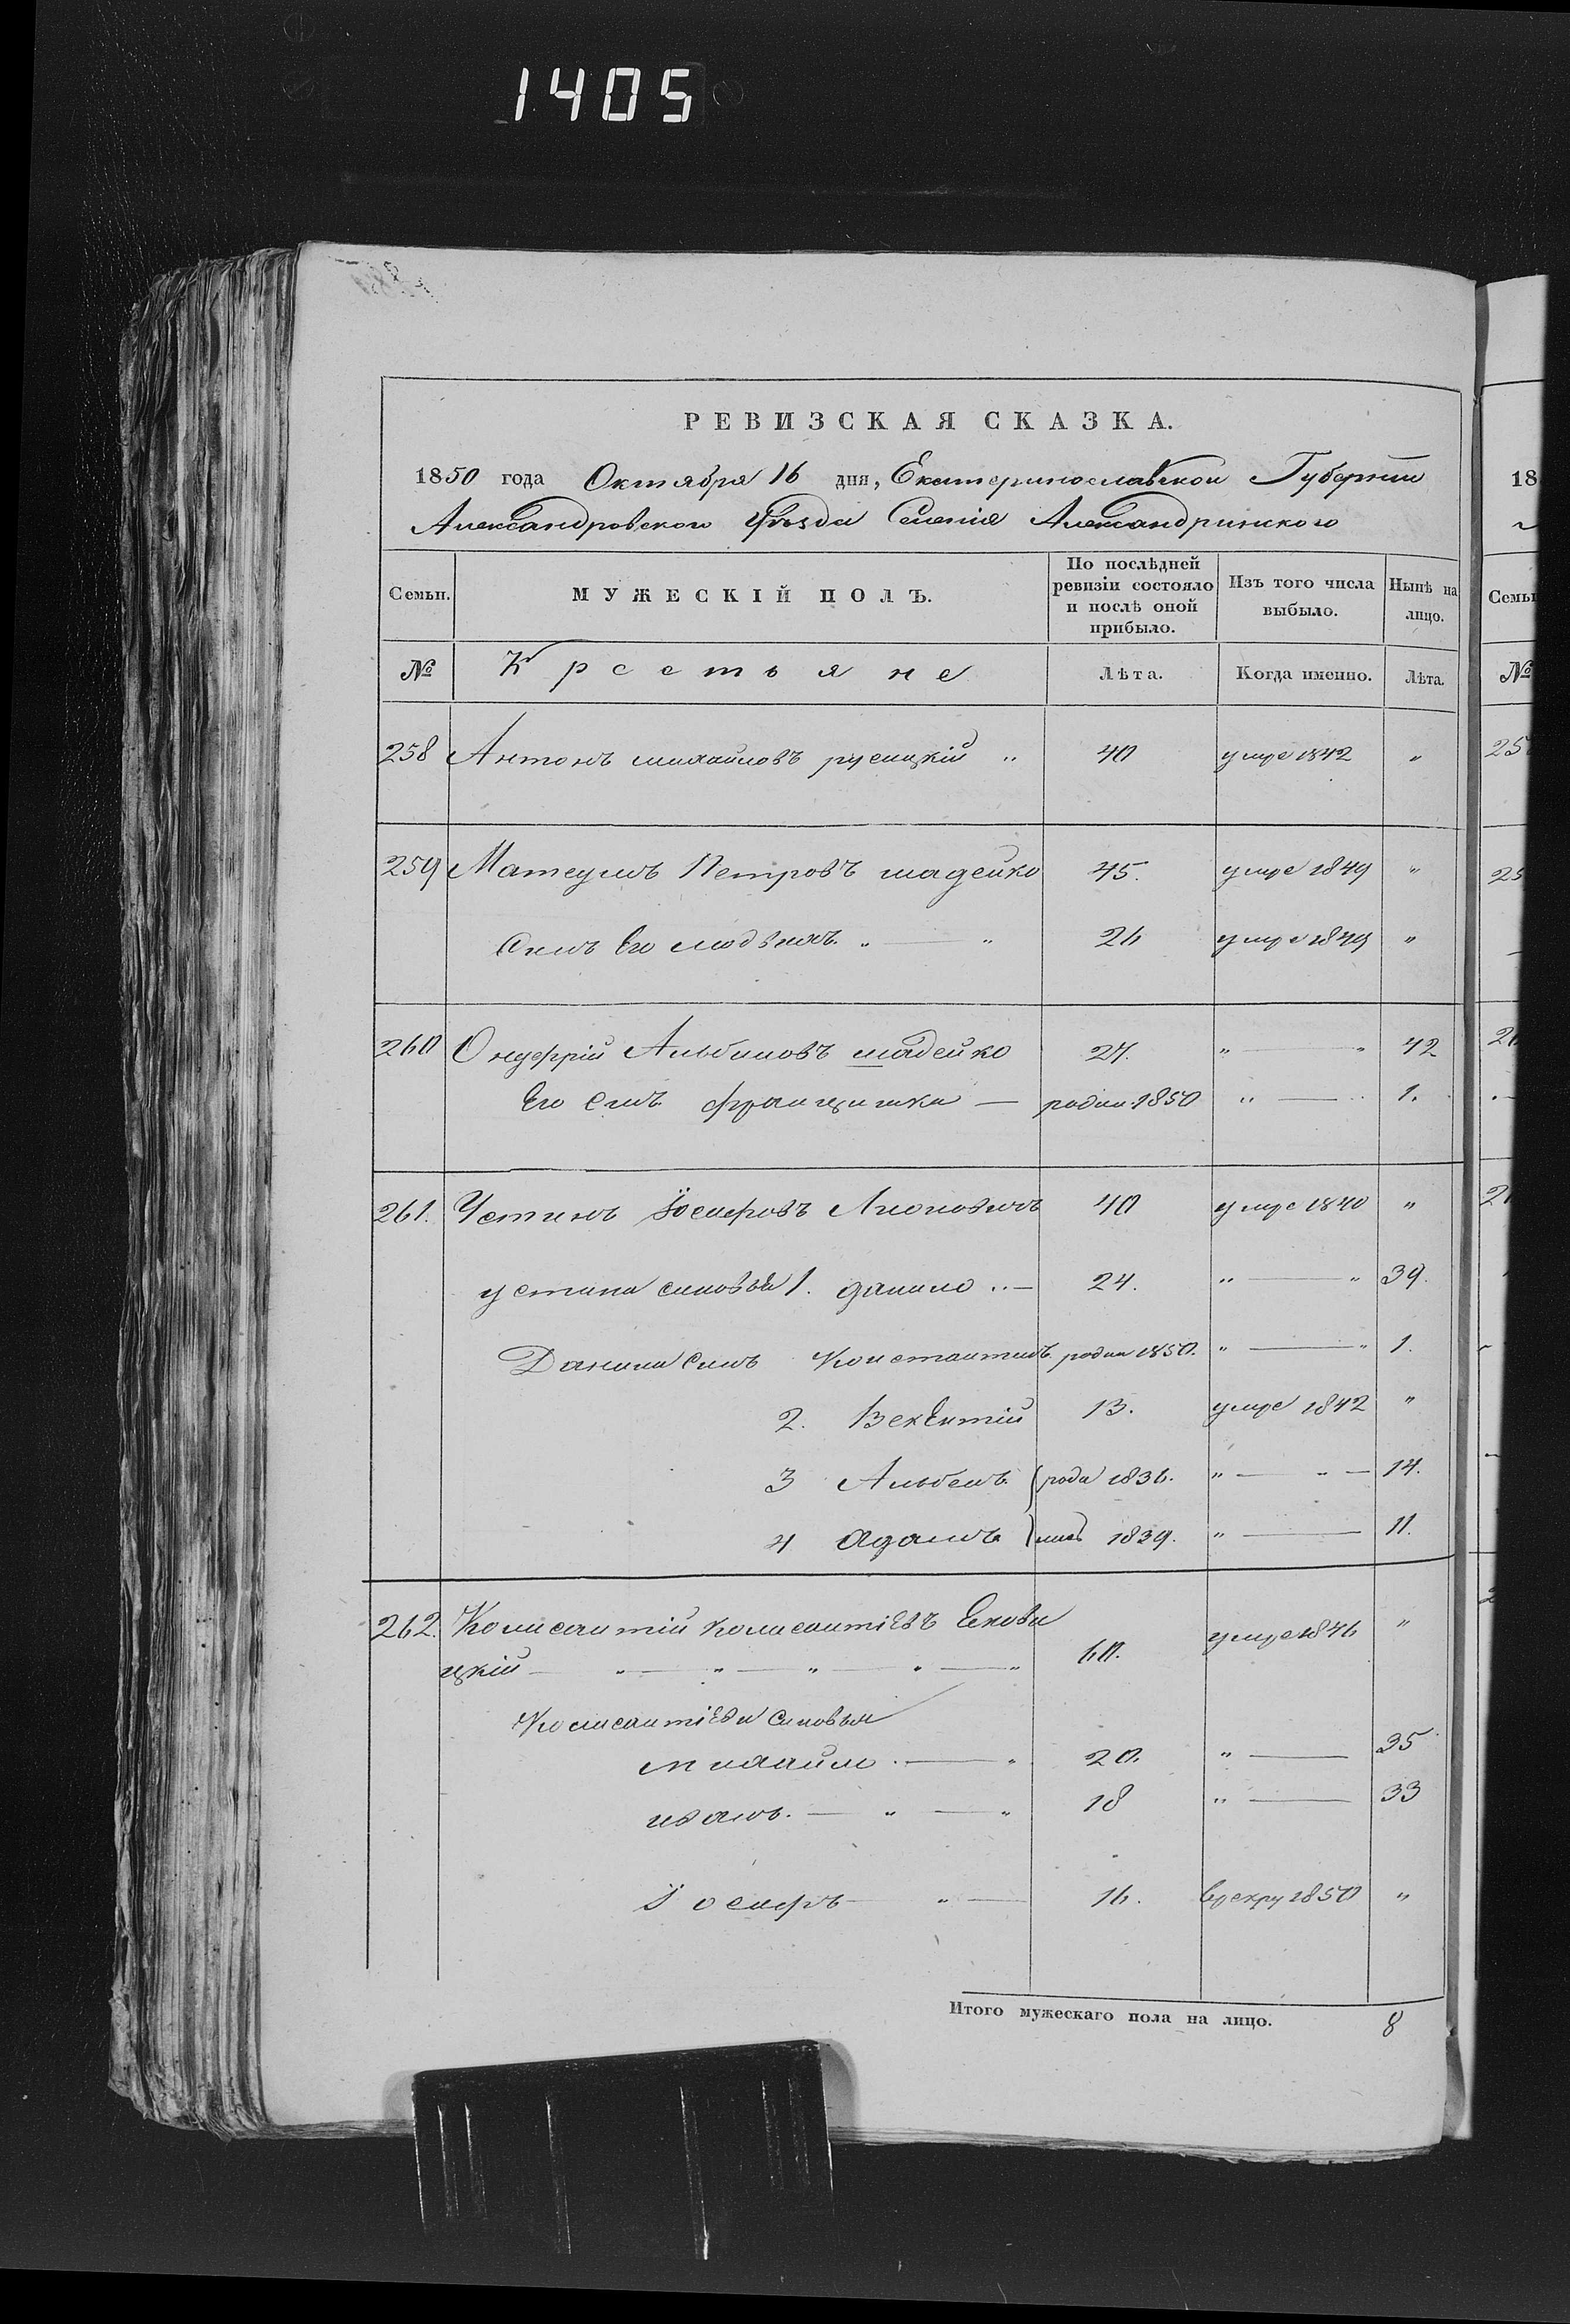 1405
РЕВИЗСКАЯ СКАЗКА.
1850 года Октября 16 дня, Екатеринославской Губернии
Александровского Уѣзда Селенiя Александринского
Семьи. МУЖЕСКIЙ ПОЛЪ. По послѣдней ревизiи состояло и послѣ оной прибыло. Изъ того числа выбыло. Нынѣ на лицо.
№ Крестьяне Лѣта. Когда именно. Лѣта.
258 Антонъ михайловъ русицкiй „ 40 умре 1842 „
259 Матеушъ Петровъ шадейко 45. умре 1849 „
Сынъ Его людвихъ. „ „ 26 умре 1849 „
260 Онуфрiй Альбиновъ шадейко 27. „ — „ 42
Его Сынъ францишка — родил. 1850 „ — „ 1.
261. Устинъ Iосифовъ 40 умре 1840 „
устина сыновья 1. данило „ — 24. „ — „ 39.
Данила Сынъ Константинъ родил 1850. „ — „ 1.
2. Векентiй 13. умре 1842 „
3 Альбенъ роди 1836. „ — „ — 14.
4 Адамъ лись 1839. „ — 11.
262. Комисантiй комисантiевъ Енови
цкiй — „ — „ — „ — „ — „ 60. умре 1846 „
Комисантiева Сыновья
михайло. — „ 20. „ — 35
иванъ. — „ — „ 18 „ — 33
Iосифъ — „ — 16. Врекру 1850 „
Итого мужескаго пола на лицо. 8
18
Семьи
№